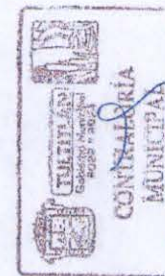 TULTITLÁN
Gobierno Municipal
2022 - 2024
CONTRALORÍA
MUNICIPAL